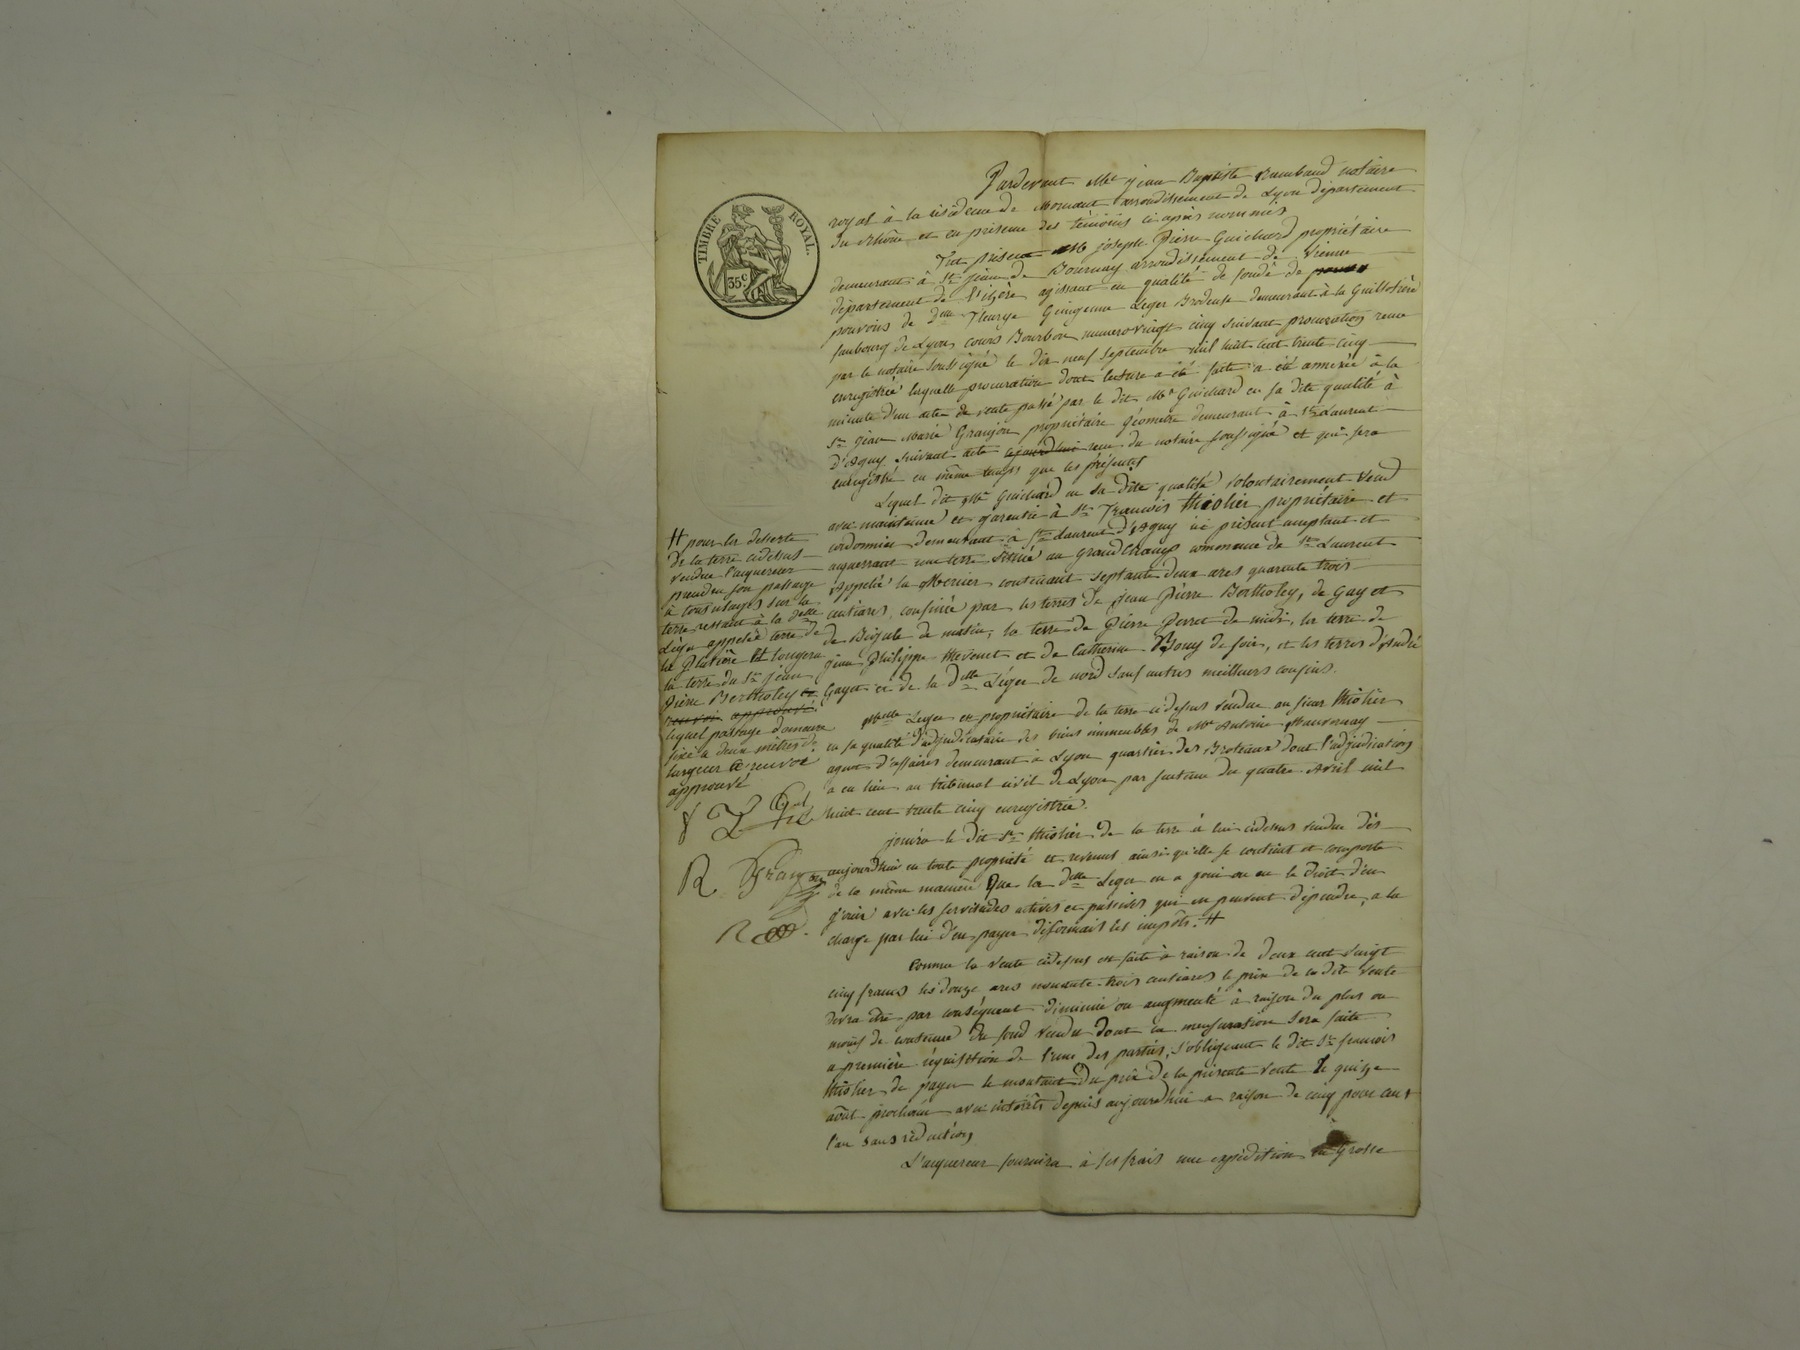 TIMBRE ROYAL.
35 c.
Pardevant Me jean Baptiste Rambaud notaire
royal à la résidence de Mornant arrondissement de Lyon département
du Rhône, et en présence des témoins ci après nommés
Fut présent Mr joseph Pierre Guichard propriétaire
demeurant à St jean de Bournay arrondissement de Vienne
département de l'izère agissant en qualité de fondé de
pouvoirs de dlle Fleurye Léger Brodeuse demeurant à la Guillotière
faubourg de Lyon, cours Bourbon numero vingt cinq suivant procuration recue
par le notaire soussigné le dix neuf septembre mil huit cent trente cinq
enregistrée laquelle procuration dont lecture a été faite a été annexée à la
minute d'un acte de vente passé par le dit Mr Guichard en sa dite qualité à
Sr jean Marie Granjon propriétaire géometre demeurant à St Laurent
d'Agny suivant acte aujourd'hui recu du notaire soussigné et qui sera
enregistré en même temps que les présentes
Lequel dit Mr Guichard en sa dite qualité volontairement vend
avec maintenue et garantie à Sr francois thiolier propriétaire et
cordonnier demeurant à St Laurent d'Agny ici présent acceptant et
acquerrant une terre située au Grand Champ commune de St Laurent
appelée la Mercier contenant septante deux ares quarente trois
centiares, confinée par les terres de jean pierre Bertholey, de Gay et
de de matin, la terre de pierre Perret de midi, les terre de
jean philippe thevenet et de Catherine Bouy de soir, et les terres d'André
Gayet et de la dlle Léger de nord sauf autres meilleurs confins.
Melle Leger est propriétaire de la terre cidessus vendue au sieur thiolier
en sa qualité d'adjudicataire des biens immeubles de Mr Antoine Mauvernay
agent d'affaires demeurant à Lyon quartier des Broteaux dont l'adjudication
a eu lieu au tribunal civil de Lyon par sentence du quatre Avril mil
huit cent trente cinq enregistrée.
jouira le dit Sr thiolier de la terre à lui cidessus vendue dès
aujourd'hui en toute propriété et revenus ainsi qu'elle se contient et comporte
de la même manière que la dlle Leger en a joui ou eu le droit d'en
jouir avec les servitudes actives et passives qui en peuvent dépendre, a la
charge par lui d'en payer désormais les impôts. #
Comme la vente cidessus est faite à raison de deux cent vingt
cinq francs les douze ares nonante-trois centiares le prix de la dite vente
devra être par conséquent diminué ou augmenté à raison du plus ou
moins de contenue du fond vendu dont la mensuration sera faite
a première réquisition de l'une des parties, s'obligeant le dit Sr francois
thiolier de payer le montant du prix de la présente vente le quinze
août prochain avec intérêts depuis aujourd'hui a raison de cinq pour cent
l'an sans réduction
L'acquereur fournira à ses frais une expédition en Grosse
# pour la deserte
de la terre cidessus
vendue l'acquereur
prendra son passage
à tous usages sur la
terre restant à la delle
Léger appelée terre de
la Platière et longera
la terre du Sr jean
pierre Bertholey
renvoi approuvé.
lequel passage demeure
fixé à deux mètres de
largeur Ce renvoi
approuvé